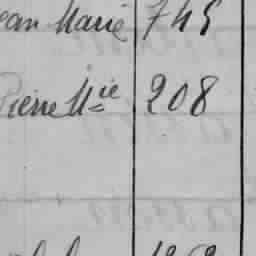 ean Marie 745
Pierre Mie 208